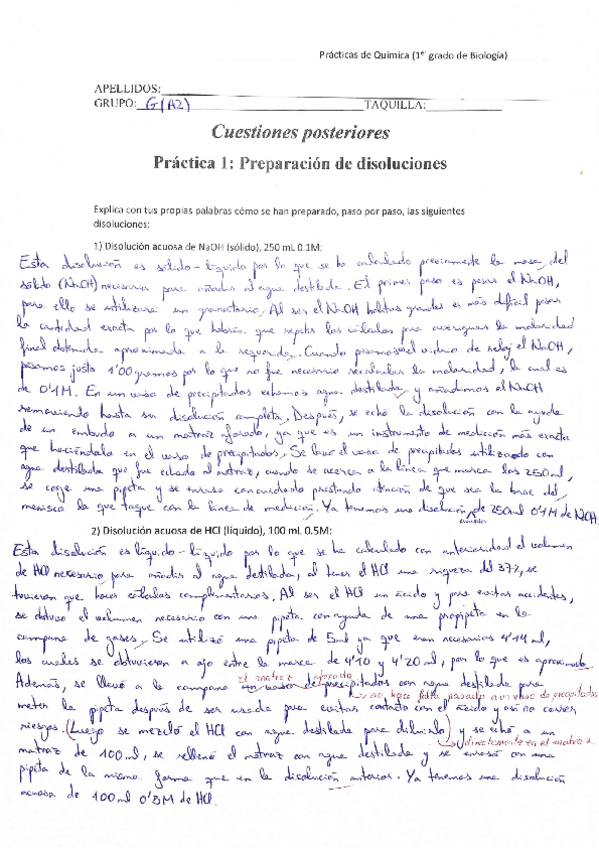 Prácticas de Química (1er grado de Biología)
APELLIDOS:
GRUPO: G(A2) TAQUILLA:
Cuestiones posteriores
Práctica 1: Preparación de disoluciones
Explica con tus propias palabras cómo se han preparado, paso por paso, las siguientes
disoluciones:
1) Disolución acuosa de NaOH (sólido), 250 mL 0.1M:
Esta disolución es sólido-líquido por lo que se ha calculado previamente la masa del
sólido (NaOH) necesario para añadir al agua destilada. El primer paso es pesar el NaOH,
para ello se utilizará un granatario. Al ser el NaOH bolitas grandes es más difícil pesar
la cantidad exacta por lo que habría que repetir los cálculos para averiguar la molaridad
final obtenida aproximada a la requerida. Cuando pesamos el vidrio de reloj el NaOH,
pesamos justo 1'00 gramos por lo que no fue necesario recalcular la molaridad, la cual es
de 0'1M. En un vaso de precipitados echamos agua destilada y añadimos el NaOH
removiendo hasta su disolución completa. Después, se echó la disolución con la ayuda
de un embudo a un matraz aforado, ya que es un instrumento de medición más exacta
que haciéndola en el vaso de precipitados. Se lavó el vaso de precipitados utilizado con
agua destilada que fue echada al matraz, cuando se acerca a la línea que marca los 250ml,
se coge una pipeta y se enrasa con cuidado prestando atención de que sea la base del
menisco la que toque con la línea de medición. Ya tenemos una disolución de 250ml 0'1M de NaOH.
acuosa
2) Disolución acuosa de HCl (líquido), 100 mL 0.5M:
Esta disolución es líquido-líquido por lo que se ha calculado con anterioridad el volumen
de HCl necesario para añadir al agua destilada, al tener el HCl una riqueza del 37%, se
tuvieron que hacer cálculos complementarios. Al ser el HCl un ácido y para evitar accidentes,
se obtuvo el volumen necesario con una pipeta con ayuda de una propipeta en la
campana de gases. Se utilizó una pipeta de 5ml ya que eran necesarios 4'14 ml,
los cuales se obtuvieron a ojo entre la marca de 4'10 y 4'20 ml, por lo que es aproximado.
el matraz aforado
Además, se llevó a la campana un vaso de precipitados con agua destilada para
no hace falta pasarlo a un vaso de precipitados
meter la pipeta después de ser usada para evitar contacto con el ácido y así no correr
riesgos. (Luego se mezcló el HCl con agua destilada para diluirlo) y se echó a un
directamente en el matraz
matraz de 100 ml, se rellenó el matraz con agua destilada y se enrasó con una
pipeta de la misma forma que en la disolución anterior. Ya tenemos una disolución
acuosa de 100 ml 0'5M de HCl.